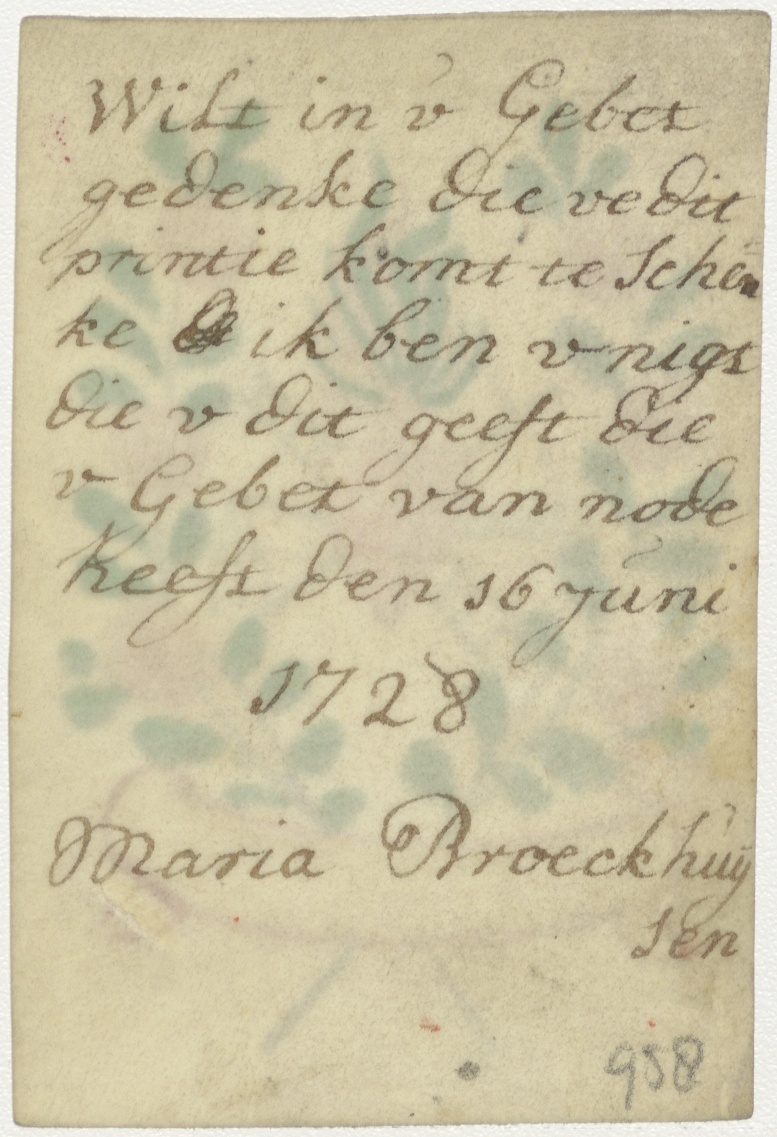 Wilt in v Gebet
gedenke die ve dit
printie komt te schen
ke ik ben v nigt
die v dit geeft die
v Gebet van node
heeft den 16 juni
1728
Maria Broeckhuÿ
sen
958